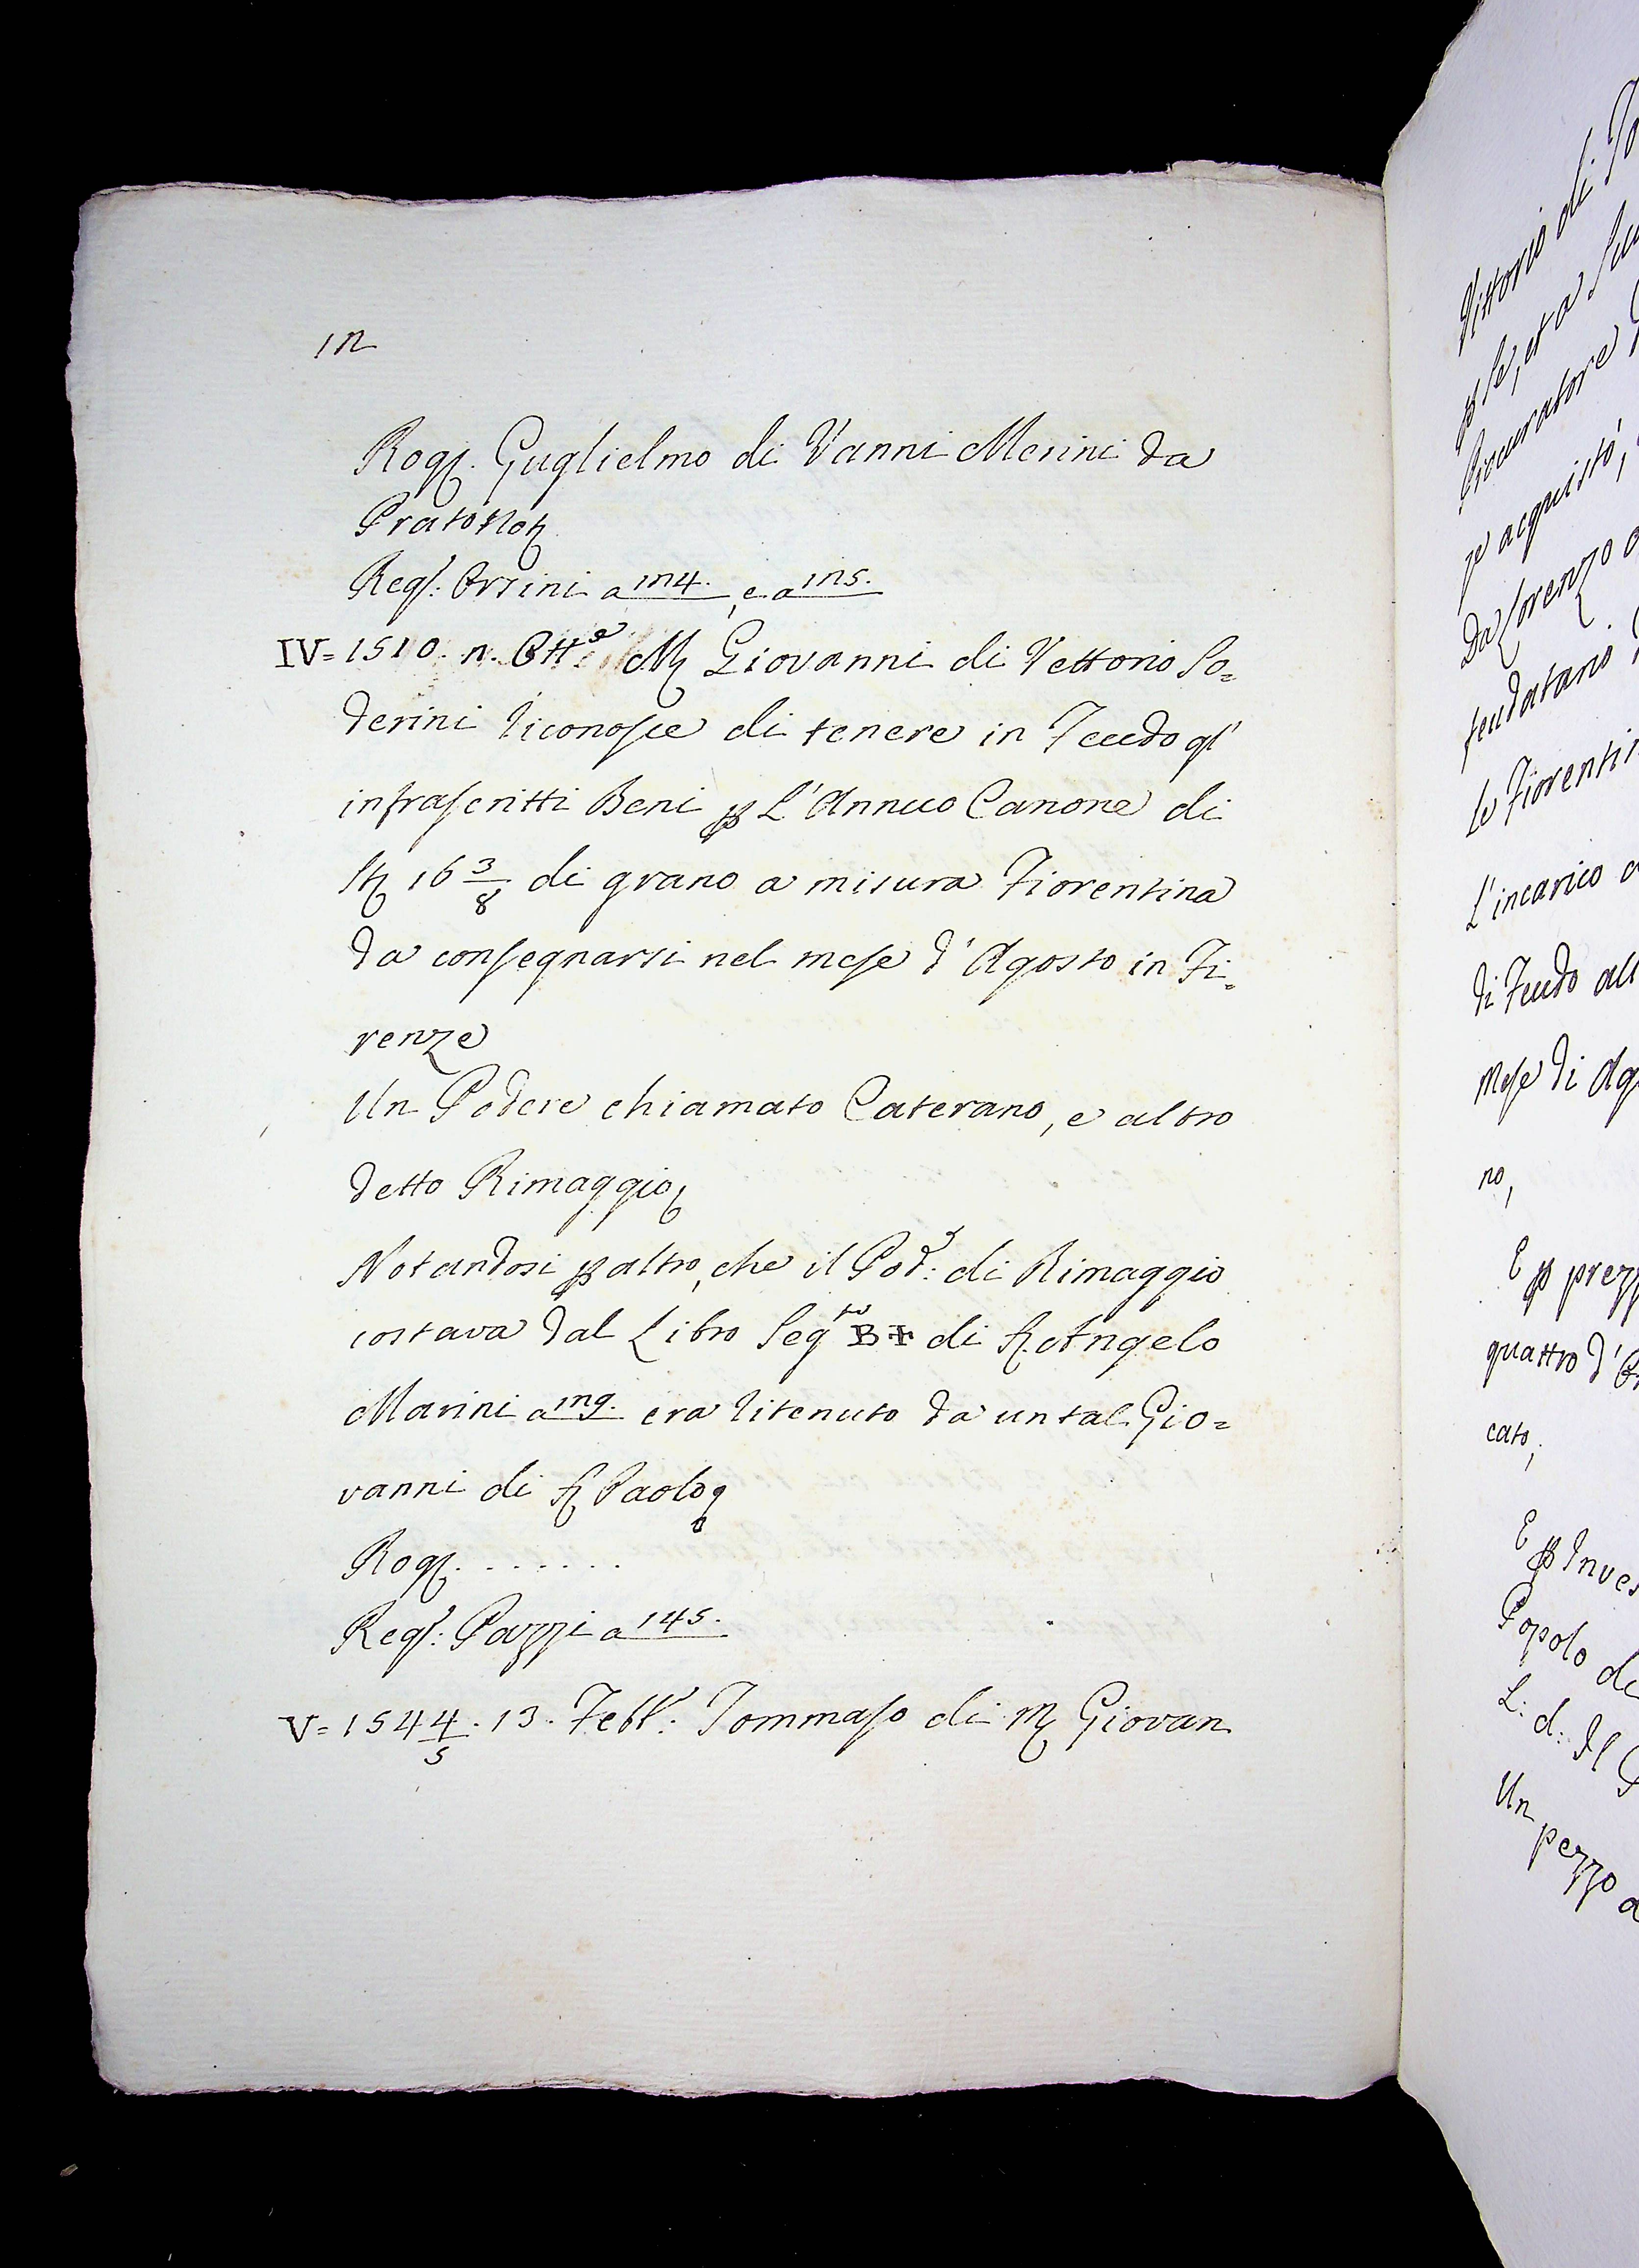 12
Rog. Guglielmo di Vanni Merini da
Prato Not.
Reg.: Orsini a 124. e a 125.
IV = 1510. 12. Ott.e M. Giovanni di Vettorio So=
derini riconosce di tenere in Feudo gl'
infrascritti Beni p L'Annuo Canone di
St. 16 3/8 di grano a misura Fiorentina
da consegnarsi nel mese d'Agosto in Fi=
renze
Un Podere chiamato Caterano, e altro
detto Rimaggio
Notandosi p altro, che il Pod.e: di Rimaggio
costava dal Libro Seg.to B+ di S. Angelo
Marini a 129. era ritenuto da un tal Gio=
vanni di S. Paolo
Rog. . . . . . .
Reg.: Pazzi a 145.
V = 1544/5. 13. Febb.: Tommaso di M. Giovan
Vittorio di
p se, et a
Procuratore
ze acquistò,
da Lorenzo
feudatario
le Fiorenti
L'incarico
di Feudo all
mese di Ag
no,
E p prezz
quattro d'
cato;
E p Inves
Popolo di
L: d: Il
Un pezzo a